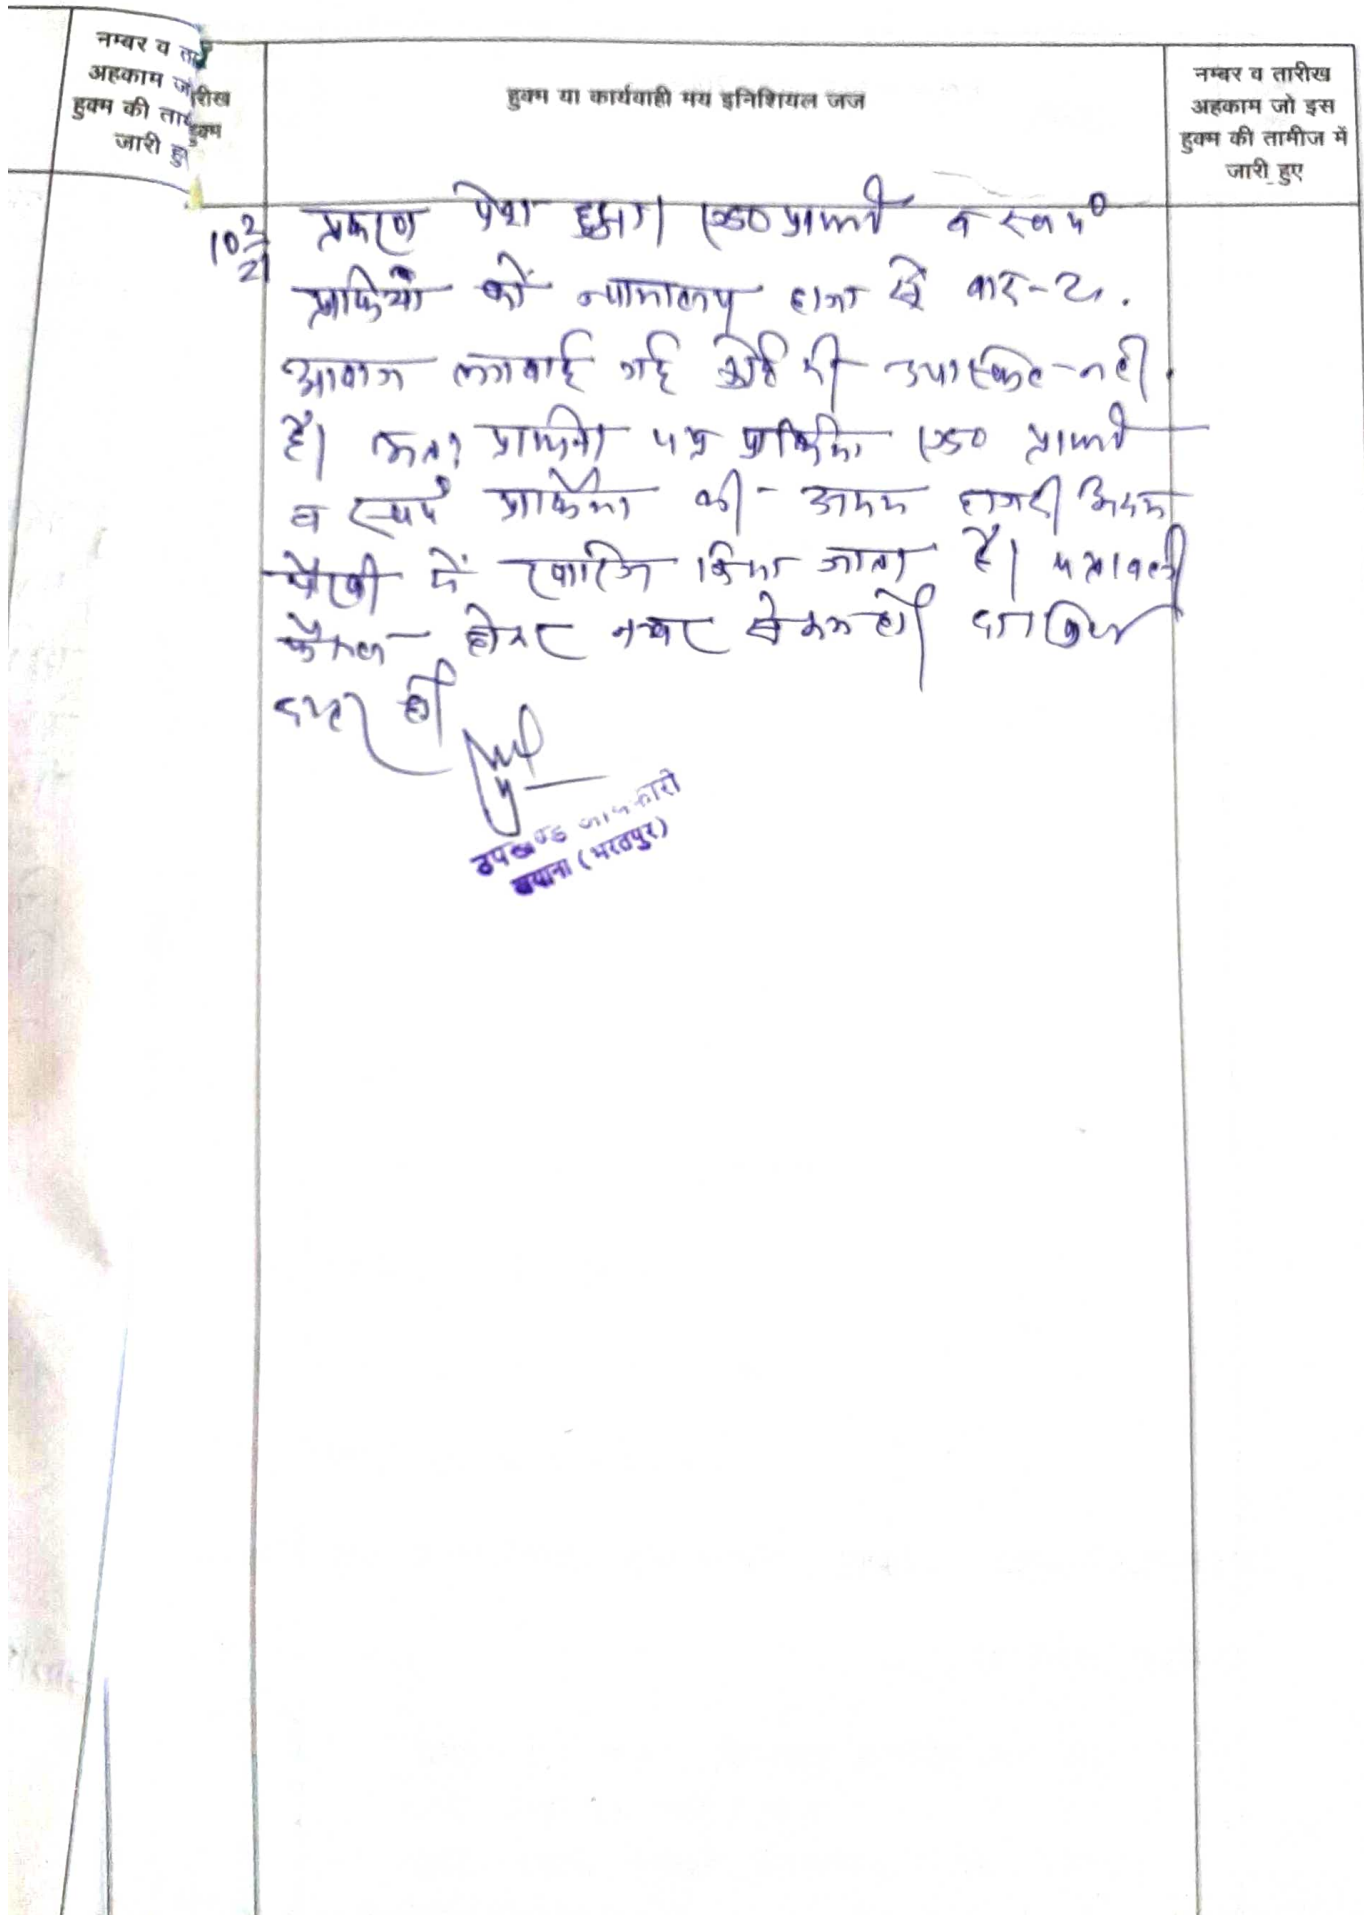 नम्बर व
अहकाम जो
हुक्म की
जारी
रीख
हुक्म
हुक्म या कार्यवाही मय इनिशियल जज
नम्बर व तारीख
अहकाम जो इस
हुक्म की तामील में
जारी हुए
10 2/21
प्रकरण पेश हुआ। प्रार्थी व स्वयं
प्रार्थिया को न्यायालय हाजा से बार-2
आवाज लगवाई गई कोई भी उपस्थित नही
है। अतः प्रार्थना पत्र प्रार्थिया प्रार्थी
व स्वयं प्रार्थिया की अदम हाजरी अदम
पैरवी में खारिज किया जाता है। पत्रावली
फैसल होकर नम्बर से कम हो दाखिल
दफ्तर हो
उपखण्ड अधिकारी
बयाना (भरतपुर)